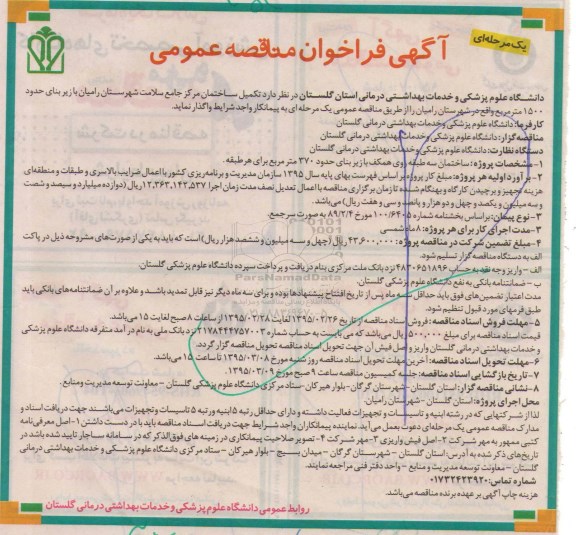 یک مرحله‌ای
آگهی فراخوان مناقصه عمومی
دانشگاه علوم پزشکی و خدمات بهداشتی درمانی استان گلستان در نظر دارد تکمیل ساختمان مرکز جامع سلامت شهرستان رامیان با زیر بنای حدود
۱۵۰۰ مترمربع واقع در شهرستان رامیان را از طریق مناقصه عمومی یک مرحله ای به پیمانکار واجد شرایط واگذار نماید.
کارفرما: دانشگاه علوم پزشکی و خدمات بهداشتی درمانی گلستان
مناقصه گزار: دانشگاه علوم پزشکی و خدمات بهداشتی درمانی گلستان
دستگاه نظارت: دانشگاه علوم پزشکی و خدمات بهداشتی درمانی گلستان
۱- مشخصات پروژه: ساختمان سه طبقه روی همکف با زیر بنای حدود ۳۷۰ متر مربع برای هر طبقه.
۲- برآورد اولیه هر پروژه: مبلغ کار پروژه بر اساس فهرست بهای پایه سال ۱۳۹۵ سازمان مدیریت و برنامه ریزی کشور با اعمال ضرایب بالاسری و طبقات و منطقه‌ای
هزینه تجهیز و برچیدن کارگاه و بهنگام شده تا زمان برگزاری مناقصه با اعمال تعدیل نصف مدت زمان اجرا ۱۲,۳۶۳,۱۴۲,۵۳۷ ریال (دوازده میلیارد و سیصد و شصت
و سه میلیون و یکصد و چهل و دو هزار و پانصد و سی و هفت ریال) می‌باشد.
۳- نوع پیمان: براساس بخشنامه شماره ۱۰۰/۶۴۰۵ مورخ ۸۹/۲/۴ به صورت سرجمع.
۳- مدت اجرای کار برای هر پروژه: ۸ ماه شمسی
۴- مبلغ تضمین شرکت در مناقصه پروژه: ۴۳,۶۰۰,۰۰۰ ریال (چهل و سه میلیون و ششصد هزار ریال) است که باید به یکی از صورت‌های مشروحه ذیل در پاکت
الف به دستگاه مناقصه گزار تسلیم شود.
الف - واریز وجه نقد به حساب ۴۸۳۰۶۵۱۸۹۶ نزد بانک ملت مرکزی بنام دریافت و پرداخت سپرده دانشگاه علوم پزشکی گلستان.
ب - ضمانتنامه بانکی به نفع دانشگاه علوم پزشکی گلستان.
مدت اعتبار تضمین‌های فوق باید حداقل سه ماه پس از تاریخ افتتاح پیشنهادها بوده و برای سه ماه دیگر نیز قابل تمدید باشد و علاوه بر آن ضمانتنامه‌های بانکی باید
طبق فرمهای مورد قبول تنظیم شود.
۵- مهلت فروش اسناد مناقصه: فروش اسناد مناقصه از تاریخ ۱۳۹۵/۰۲/۲۶ لغایت ۱۳۹۵/۰۲/۲۸ از ساعت ۸ صبح لغایت ۱۵ می‌باشد.
قیمت اسناد مناقصه برای مبلغ ۵۰۰,۰۰۰ ریال می‌باشد که می بایست به حساب شماره ۲۱۷۸۴۴۴۷۵۷۰۰۳ نزد بانک ملی به نام درآمد متفرقه دانشگاه علوم پزشکی
و خدمات بهداشتی درمانی گلستان واریز و اصل فیش آن جهت تحویل اسناد مناقصه تحویل مناقصه گزار گردد.
۶- مهلت تحویل اسناد مناقصه: آخرین مهلت تحویل اسناد مناقصه روز شنبه مورخ ۱۳۹۵/۰۳/۰۸ تا ساعت ۱۵ می‌باشد.
۷- تاریخ بازگشایی اسناد مناقصه: جلسه کمیسیون مناقصه ساعت ۹ صبح مورخ ۱۳۹۵/۰۳/۰۹.
۸- نشانی مناقصه گزار: استان گلستان - شهرستان گرگان - بلوار هیرکان - ستاد مرکزی دانشگاه علوم پزشکی گلستان - معاونت توسعه مدیریت و منابع.
محل اجرای پروژه: استان گلستان - شهرستان رامیان.
لذا از شرکتهایی که در رشته ابنیه و تاسیسات و تجهیزات فعالیت داشته و دارای حداقل رتبه ۵ ابنیه و رتبه ۵ تاسیسات و تجهیزات می‌باشند جهت دریافت اسناد و
مدارک مناقصه عمومی یک مرحله‌ای دعوت بعمل می‌آید. نماینده پیمانکاران واجد شرایط جهت دریافت اسناد مناقصه باید با در دست داشتن ۱- اصل معرفی نامه
کتبی ممهور به مهر شرکت ۲- اصل فیش واریزی ۳- مهر شرکت ۴- تصویر صلاحیت پیمانکاری در زمینه های فوق الذکر که در سامانه ساجار تایید شده باشد در
تاریخ‌های ذکر شده به آدرس: استان گلستان - شهرستان گرگان - میدان بسیج - بلوار هیرکان - ستاد مرکزی دانشگاه علوم پزشکی و خدمات بهداشتی درمانی
گلستان - معاونت توسعه مدیریت و منابع - واحد دفتر فنی مراجعه نمایند.
شماره تماس: ۰۱۷۳۲۴۲۳۹۲۰
هزینه چاپ آگهی بر عهده برنده مناقصه می‌باشد.
روابط عمومی دانشگاه علوم پزشکی و خدمات بهداشتی درمانی گلستان